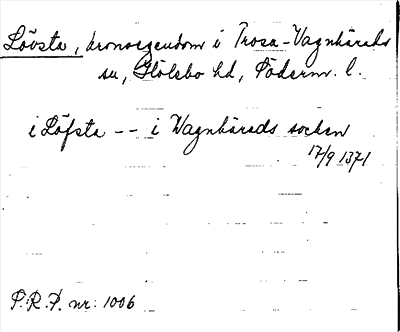 Lövsta, kronoegendom i Trosa-Vagnhärads
sn, Hölebo hd, Söderm. l.
i Löfsta -- i Wagnhärads socken
17/9 1371
P.R.F. nr: 1006